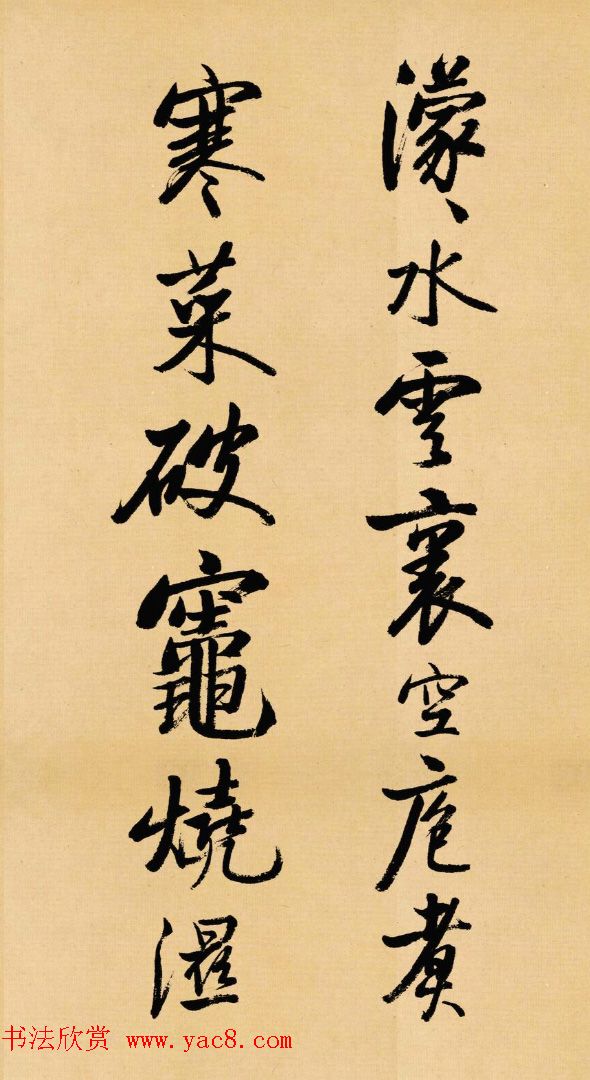 濛〻水雲裏空庖煮
寒菜破竈燒溼
书法欣赏 www.yac8.com